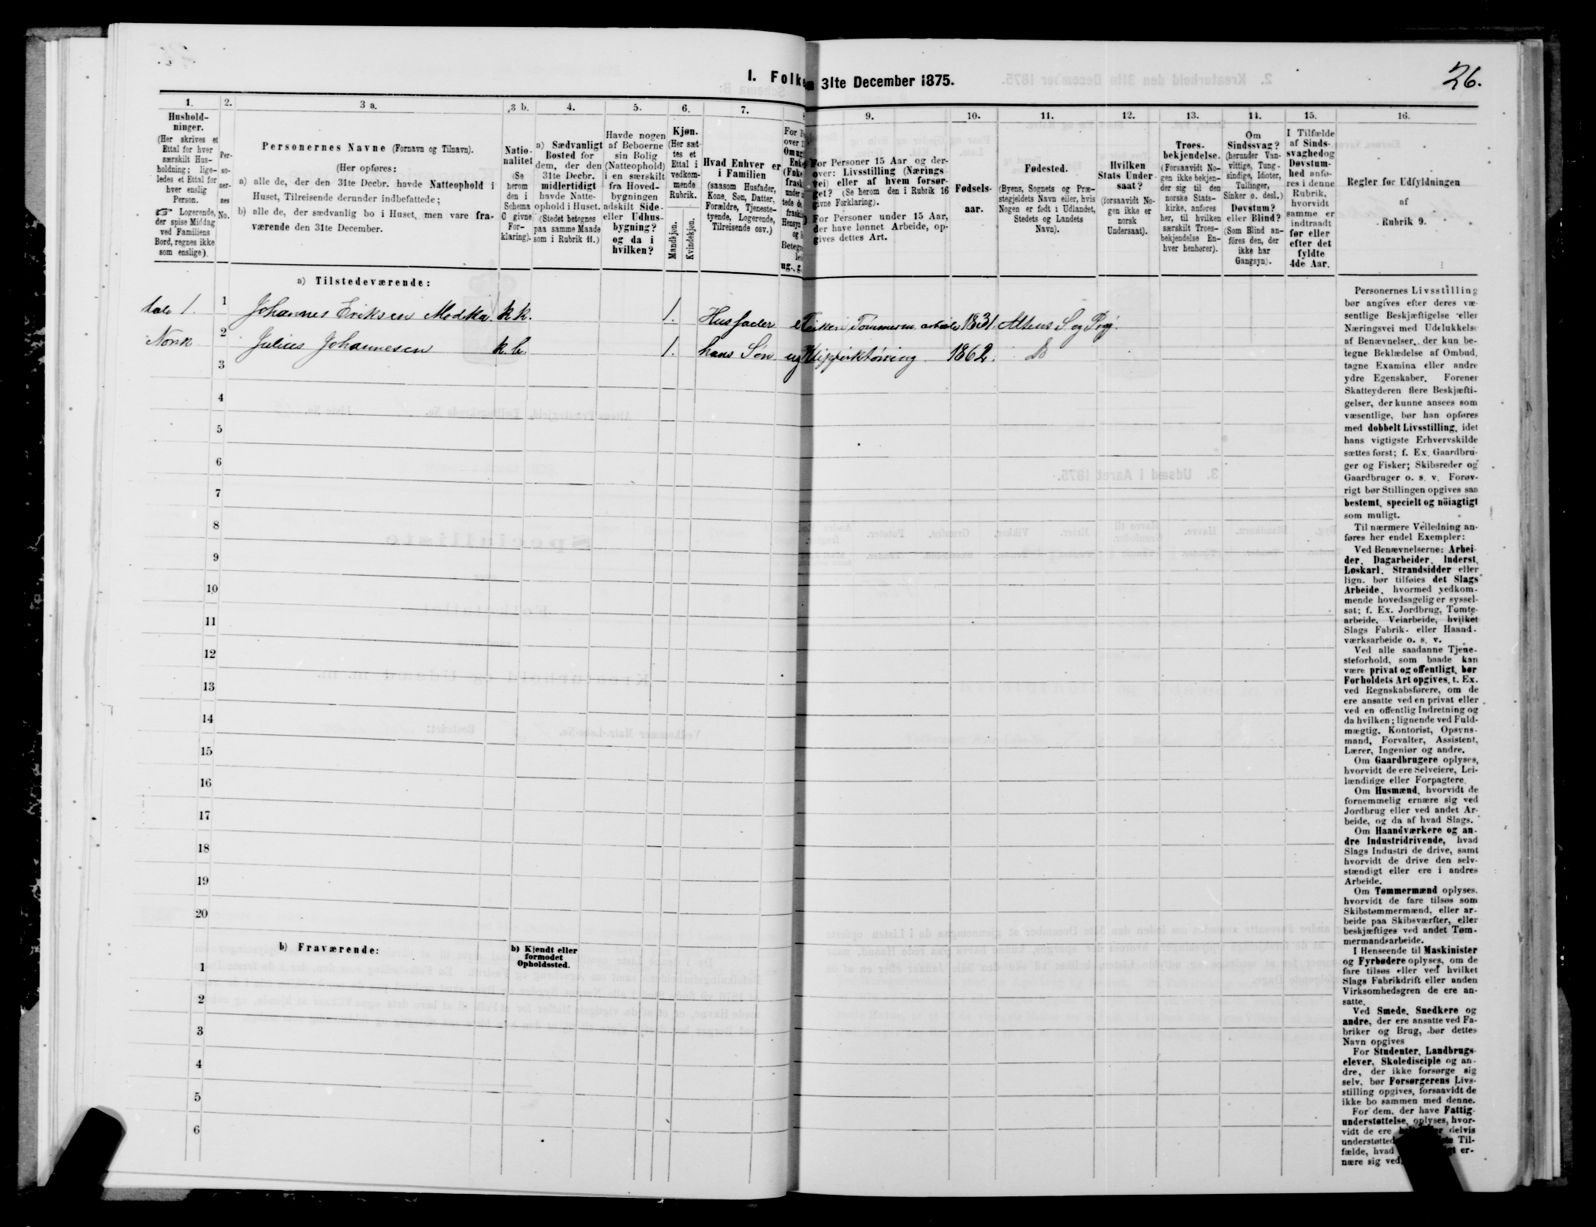 26.
I. Folke
m 31te December 1875.
1.
Hushold-
ninger.
(Her skrives et
Ettal for hver
særskilt Hus-
holdning; lige-
ledes et Ettal for
hver enslig
Person.
☞ Logerende,
der spise Middag
ved Familiens
Bord, regnes ikke
som enslige).
2.
Per-
so-
ner-
nes
No.
3 a.
Personernes Navne (Fornavn og Tilnavn).
(Her opføres:
a) alle de, der den 31te Decbr. havde Natteophold i
Huset, Tilreisende derunder indbefattede;
b) alle de, der sædvanlig bo i Huset, men vare fra-
værende den 31te December.
3 b.
Natio-
nalitet
(Se
herom
den i
Schema
C givne
For-
klaring).
4.
a) Sædvanligt
Bosted for
dem, der den
31te Decbr.
midlertidigt
havde Natte-
ophold i Huset.
(Stedet betegnes
paa samme Maade
som i Rubrik 11.)
5.
Havde nogen
af Beboerne
sin Bolig
(Natteophold)
i en særskilt
fra Hoved-
bygningen
adskilt Side-
eller Udhus-
bygning?
og da i
hvilken?
6.
Kjøn.
(Her sæt-
tes et
Ettal i
vedkom-
mende
Rubrik.
Mandkjøn.
Kvindekjøn.
7.
Hvad Enhver er
i Familien
(saasom Husfader,
Kone, Søn, Datter,
Forældre, Tjeneste-
tyende, Logerende,
Tilreisende osv.)
9.
For Personer 15 Aar og der-
over: Livsstilling (Nærings-
vei) eller af hvem forsør-
get? (Se herom den i Rubrik 16
givne Forklaring).
For Personer under 15 Aar,
der have lønnet Arbeide, op-
gives dettes Art.
10.
Fødsels-
aar.
11.
Fødested.
(Byens, Sognets og Præ-
stegjeldets Navn eller, hvis
Nogen er født i Udlandet,
Stedets og Landets
Navn).
12.
Hvilken
Stats Under-
saat?
(forsaavidt No-
gen ikke er
norsk
Undersaat).
13.
Troes-
bekjendelse.
(Forsaavidt No-
gen ikke bekjen-
der sig til den
norske Stats-
kirke, anføres
her, til hvilken
særskilt Troes-
bekjendelse En-
hver henhører).
14.
Om
Sindssvag?
(herunder Van-
vittige, Tung-
sindige, Idioter,
Tullinger,
Sinker o. desl.)
Døvstum?
eller Blind?
(Som Blind an-
føres den, der
ikke har
Gangsyn).
15.
I Tilfælde
af Sinds-
svaghed og
Døvstum-
hed anfø-
res i denne
Rubrik,
hvorvidt
samme er
indtraadt
før eller
efter det
fyldte
4de Aar.
16.
Regler for Udfyldningen
af
Rubrik 9.
a) Tilstedeværende:
1 Johannes Eriksen k.k. 1. Husfader 1831
2 Julius Johannesen k.k. 1. hans Søn ug 1862.
3
4
5
6
7
8
9
10
11
12
13
14
15
16
17
18
19
20
b) Fraværende:
b) Kjendt eller
formodet
Opholdssted.
1
2
3
4
5
6
Personernes Livsstilling
bør angives efter deres væ-
sentlige Beskjæftigelse eller
Næringsvei med Udelukkelse
af Benævnelser, der kun be-
tegne Beklædelse af Ombud,
tagne Examina eller andre
ydre Egenskaber. Forener
Skatteyderen flere Beskjæfti-
gelser, der kunne ansees som
væsentlige, bør han opføres
med dobbelt Livsstilling, idet
hans vigtigste Erhvervskilde
sættes først; f. Ex. Gaardbru-
ger og Fisker; Skibsreder og
Gaardbruger o. s. v. Forøv-
rigt bør Stillingen opgives saa
bestemt, specielt og nöiagtigt
som muligt.
Til nærmere Veiledning an-
føres her endel Exempler:
Ved Benævnelserne: Arbei-
der, Dagarbeider, Inderst,
Løskarl, Strandsidder eller
lign. bør tilføies det Slags
Arbeide, hvormed vedkom-
mende hovedsagelig er syssel-
sat; f. Ex. Jordbrug, Tomte-
arbeide, Veiarbeide, hvilket
Slags Fabrik- eller Haand-
værksarbeide o. s. v.
Ved alle saadanne Tjene-
steforhold, som baade kan
være privat og offentligt, bør
Forholdets Art opgives, t. Ex.
ved Regnskabsførere, om de
ere ansatte ved en privat eller
ved en offentlig Indretning og
da hvilken; lignende ved Fuld-
mægtig, Kontorist, Opsyns-
mand, Forvalter, Assistent,
Lærer, Ingeniør og andre.
Om Gaardbrugere oplyses,
hvorvidt de ere Selveiere, Lei-
lændinge eller Forpagtere.
Om Husmænd, hvorvidt de
fornemmelig ernære sig ved
Jordbrug eller ved andet Ar-
beide, og da af hvad Slags.
Om Haandværkere og an-
dre Industridrivende, hvad
Slags Industri de drive, samt
hvorvidt de drive den selv-
stændigt eller ere i andres
Arbeide.
Om Tømmermænd oplyses,
hvorvidt de fare tilsøs som
Skibstømmermænd, eller ar-
beide paa Skibsværfter, eller
beskjæftiges ved andet Tøm-
mermandsarbeide.
I Henseende til Maskinister
og Fyrbødere oplyses, om de
fare tilsøs eller ved hvilket
Slags Fabrikdrift eller anden
Virksomhedsgren de ere an-
satte.
Ved Smede, Snedkere og
andre, der ere ansatte ved Fa-
briker og Brug, bør dettes
Navn opgives
For Studenter, Landbrugs-
elever, Skoledisciple og an-
dre, der ikke forsørge sig
selv, bør Forsørgerens Livs-
stilling opgives, forsaavidt de
ikke bo sammen med denne.
For dem, der have Fattig-
understøttelse, oplyses, hvor-
vidt de ere delvis
understøttede Til-
fælde, hvad er-
nære sig ved.